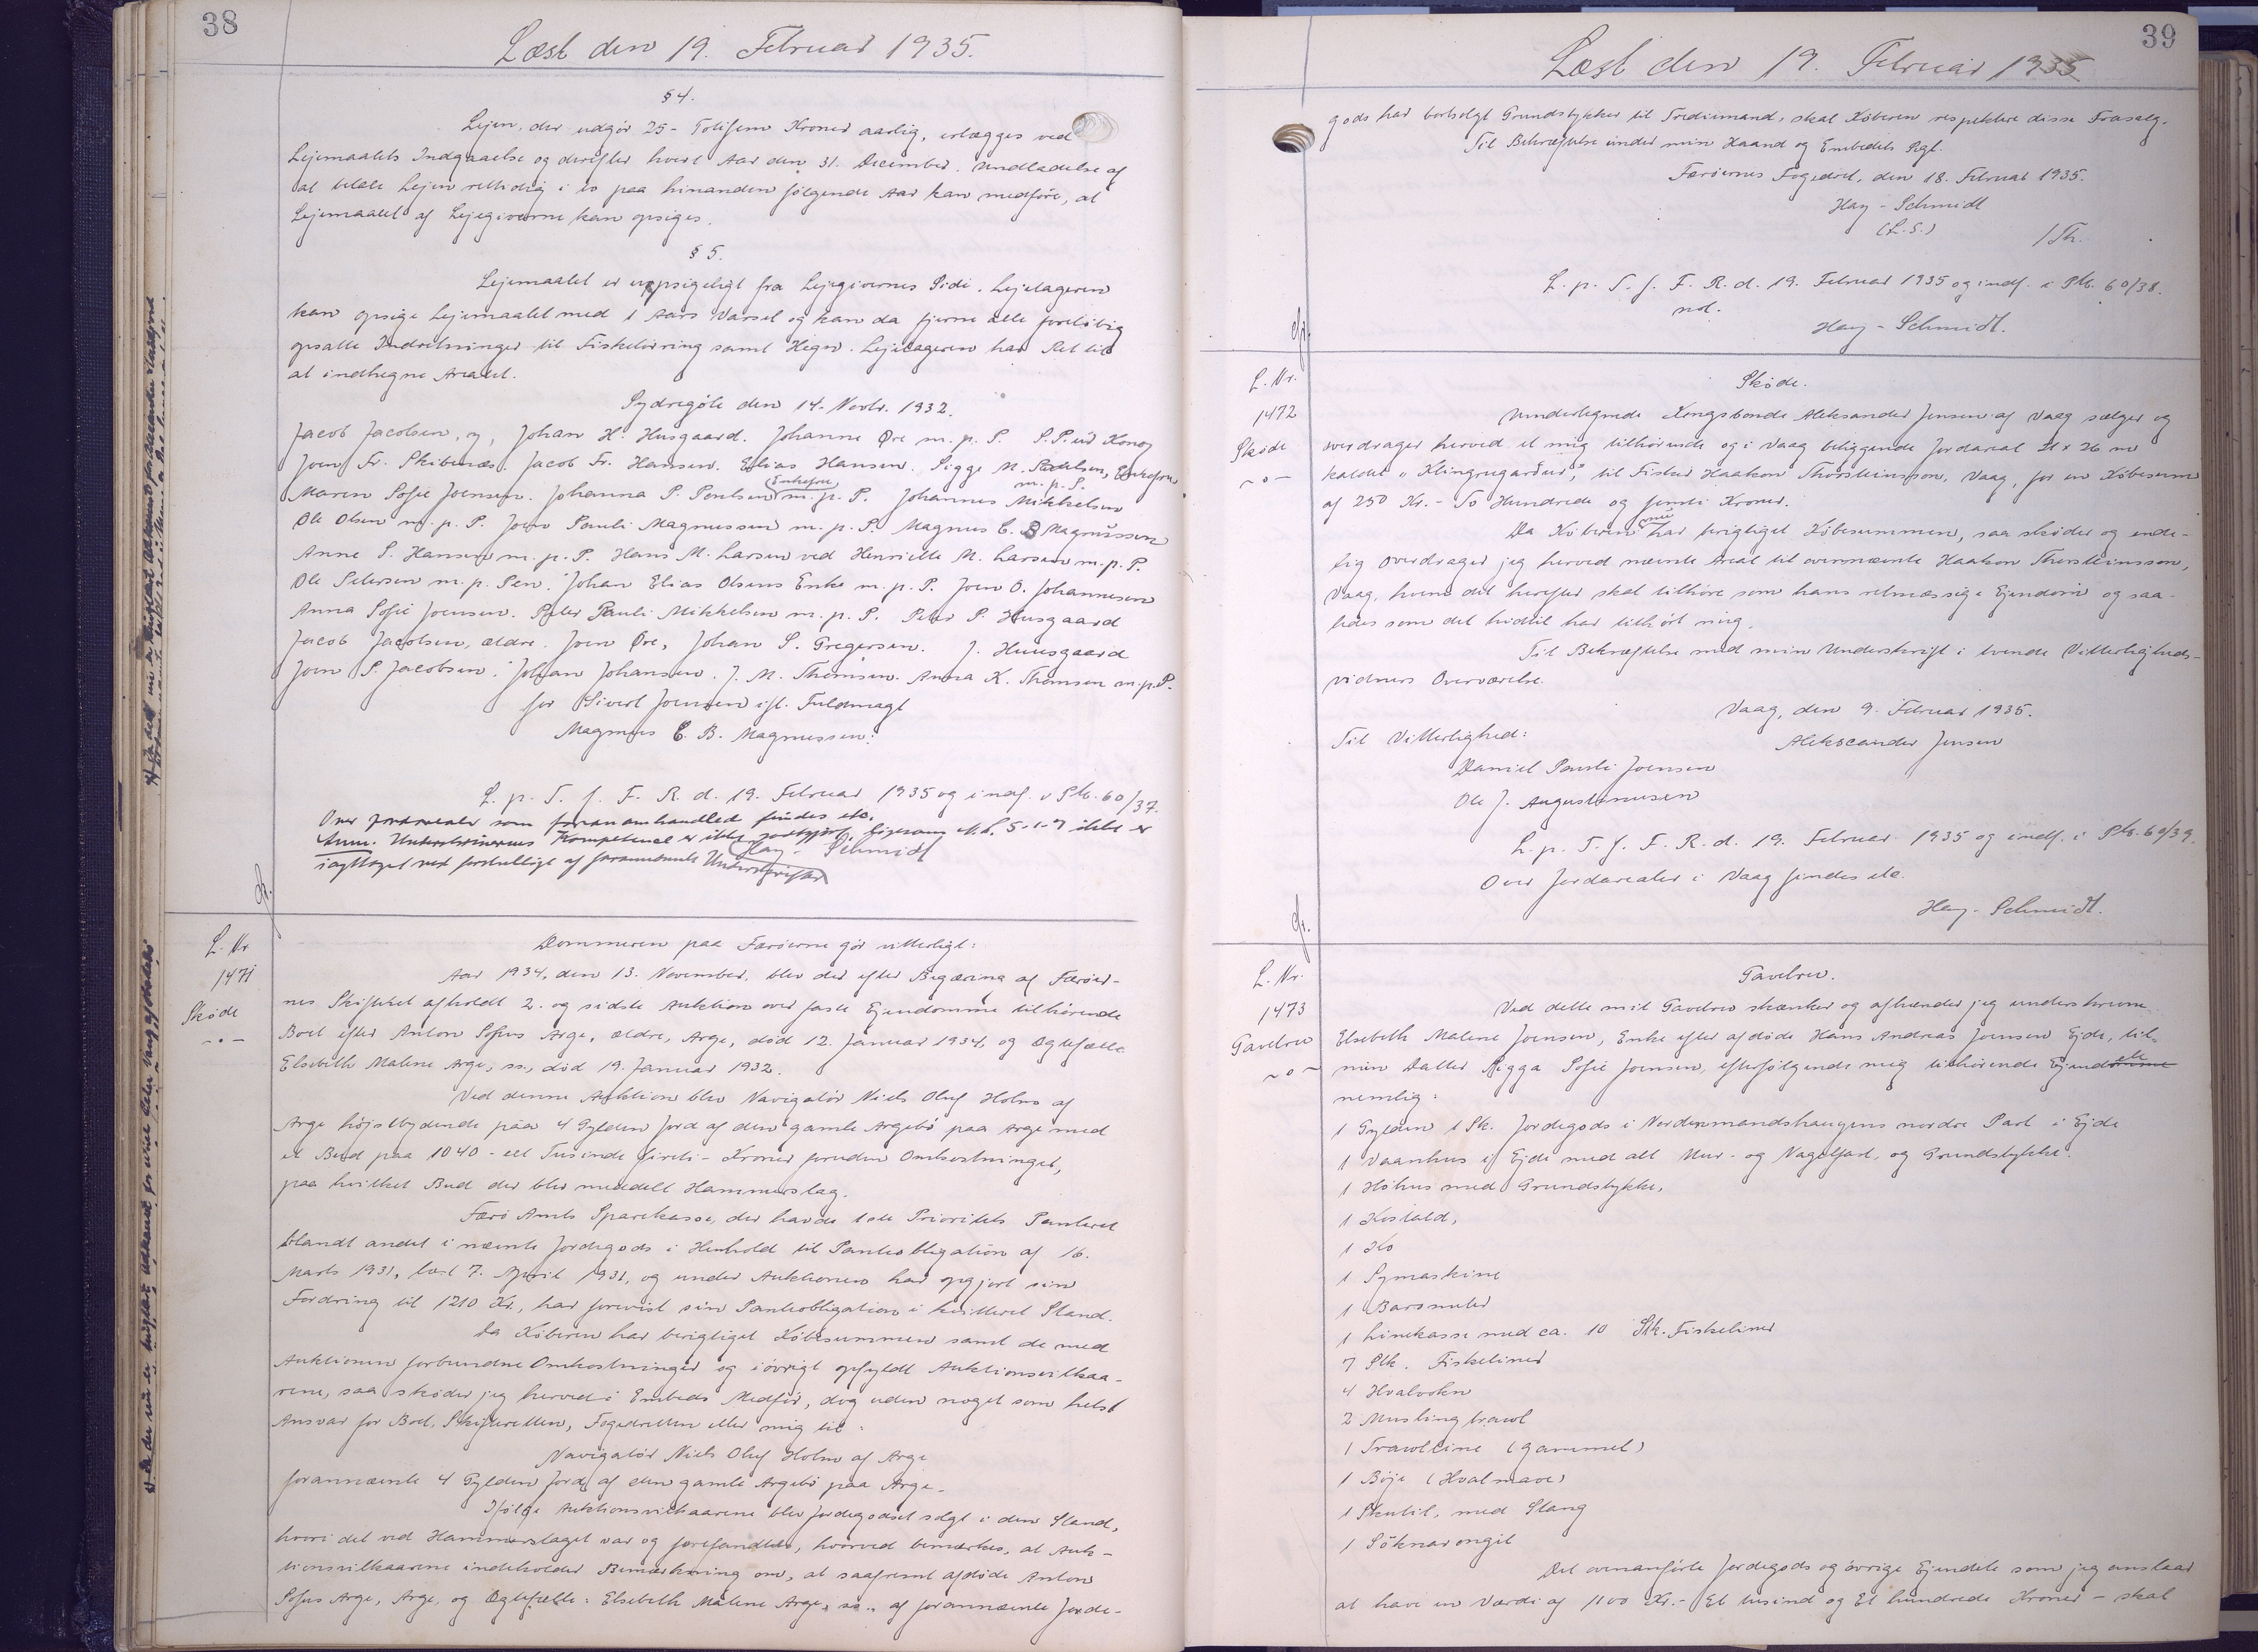 38
Læst den 19. Februar 1935.
§ 4.
Lejen, der udgör 25 - Totifem Kroner aarlig, erlægges ved
Lejemaalets Indgaaelse og derefter hvert Aar den 31. December. Undladelse af
at betale Lejen rettidig i to paa hinanden følgende Aar kan medføre, at
Lejemaalet af Lejegiverne kan opsiges.
§ 5.
Lejemaalet er uopsigeligt fra Lejegivernes Side. Lejetageren
kan opsige Lejemaalet med 1 Aars Varsel og kan da fjerne alle foreløbig
opsatte Indretninger til Fisketörring samt Hegn. Lejetageren har Ret til
at indhegne Arealet.
Sydregöte den 14. Novbr. 1932.
Jacob Jacobsen, y, Johan H. Husgaard. Johanne Øre m. p. P. S. P. úr Konoy
Joen Fr. Skibenæs. Jacob Fr. Hansen. Elias Hansen. Sigge M. Poulsen, Enkefru
m. p. P.
Maren Sofie Joensen. Johanna P. Poulsen Enkefru m. p. P. Johannes Mikkelsen
Ole Olsen m. p. P. Joen Pauli Magnussen m. p. P. Magnus C. B Magnussen
Anne S. Hansen m. p. P. Hans M. Larsen ved Henriette M. Larsen m. p. P.
Ole Petersen m. p. Pen. Johan Elias Olsens Enke m. p. P. Joen O. Johannesen
Anna Sofie Joensen. Peter Pauli Mikkelsen m. p. P. Peter P. Husgaard
Jacob Jacobsen, ældre. Joen Øre, Johan S. Gregersen. J. Huusgaard
Joen S. Jacobsen. Johan Johansen. J. M. Thomsen. Anna K. Thomsen m. p. P.
for Sivert Joensen ifl. Fuldmagt
Magnus C. B. Magnussen.
L. p. T. f. F. R. d. 19. Februar 1935 og indf. i Ptb. 60/37.
Over Jordarealer som foran omhandled findes etc.
Anm. Underskrivernes Kompetence er ikke godtgjort, ligesom N.L. 5-1-7 ikke er
Hay - Schmidt
iagttaget ved forskelligt af forannævnte Underskrifter
L. Nr
1471
Skøde
Dommeren paa Færöerne gör vitterligt:
Aar 1934, den 13. November, blev der efter Begæring af Færöer-
nes Skifteret afholdt 2. og sidste Auktion over faste Ejendomme tilhörende
Boet efter Anton Sofus Arge, ældre, Arge, död 12. Januar 1934, og Ægtefælle
Elsebeth Malene Arge, ss., död 19. Januar 1932.
Ved denne Auktion blev Navigatör Niels Oluf Holm af
Arge höjstbydende paa 4 Gylden Jord af den gamle Argebö paa Arge med
et Bud paa 1040 - eet Tusinde fireti - Kroner foruden Omkostninger,
paa hvilket Bud der blev meddelt Hammerslag.
Færö Amts Sparekasse, der havde 1ste Prioritets Panteret
blandt andet i nævnte Jordegods i Henhold til Panteobligation af 16.
Marts 1931, læst 7. April 1931, og under Auktionen har opgjort sin
Fordring til 1210 Kr., har forevist sin Panteobligation i kvitteret Stand.
Da Köberen har berigtiget Köbesummen samt de med
Auktionen forbundne Omkostninger og iövrigt opfyldt Auktionsvilkaa-
rene, saa sköder jeg herved i Embeds Medför, dog uden noget som helst
Ansvar for Boet, Skifteretten, Fogedretten eller mig til:
Navigatör Niels Oluf Holm af Arge
forannævnte 4 Gylden Jord af den gamle Argebö paa Arge.
Ifölge Auktionsvilkaarene blev Jordegodset solgt i den Stand,
hvori det ved Hammerslaget var og forefandtes, hvorved bemærkes, at Auk-
tionsvilkaarene indeholder Bemærkning om, at saafremt afdöde Anton
Sofus Arge, Arge, og Ægtefælle: Elsebeth Malene Arge, ss., af forannævnte Jorde-
39
Læst den 19. Februar 1935
gods har bortsolgt Grundstykker til Trediemand, skal Köberen respektere disse Frasalg.
Til Bekræftelse under min Haand og Embedets Segl.
Færöernes Fogedret, den 18. Februar 1935.
Hay - Schmidt
(L. S.)
/Th.
L. p. T. f. F. R. d. 19. Februar 1935 og indf. i Ptb. 60/38.
not.
Hay - Schmidt.
L. Nr.
1472
Skøde
Skøde.
Underskrevne Kongsbonde Aleksander Jensen af Vaag sælger og
overdrager herved et mig tilhørende og i Vaag beliggende Jordareal 21 x 26 m
kaldet "Klingrugarður", til Fisker Haakon Thorsteinsson, Vaag, for en Købesum
af 250 Kr. - To Hundrede og femti Kroner.
Da Köberen nu har berigtiget Købesummen, saa skøder og ende-
lig overdrager jeg herved nævnte Areal til ovennævnte Haakon Thorsteinsson,
Vaag, hvem det herefter skal tilhøre som hans retmæssige Ejendom og saa-
ledes som det hidtil har tilhørt mig.
Til Bekræftelse med min Underskrift i tvende Vitterligheds-
vidners Overværelse.
Vaag, den 9. Februar 1935.
Til Vitterlighed:
Aleksander Jensen
Daniel Pauli Joensen
Ole J. Augustinussen
L. p. T. f. F. R. d. 19. Februar 1935 og indf. i Ptb. 60/39.
Over Jordarealer i Vaag findes etc.
Hay - Schmidt.
L. Nr.
1473
Gavebrev
Gavebrev.
Ved dette mit Gavebrev skænker og afhænder jeg underskrevne
Elsebeth Malene Joensen, Enke efter afdöde Hans Andreas Joensen Ejde, til
min Datter Sigga Sofie Joensen, efterfölgende mig tilhörende Ejendomme ele
nemlig:
1 Gylden 1 Sk. Jordegods i Nordenmandshaugens nordre Part i Ejde
1 Vaanhus i Ejde med alt Mur- og Nagelfast, og Grundstykke.
1 Höhus med Grundstykke,
1 Kostald,
1 Ko
1 Symaskine
1 Barometer
1 Linekasse med ca. 10 Stk. Fiskeliner
7 Stk. Fiskeliner
4 Hvalvokn
2 Musling trawl
1 Trawlline (gammel)
1 Böje (Hvalmave)
1 Skutil, med Stang
1 Söknarongil
Det ovenanförte Jordegods og övrige Ejendele som jeg anslaar
at have en Værdi af 1100 Kr. - Et tusind og Et hundrede Kroner - skal